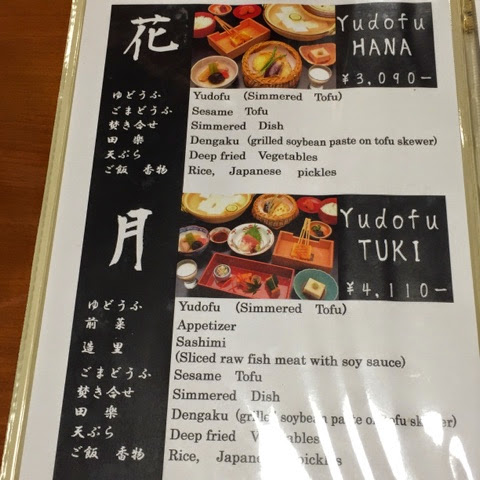 花
Yudofu
HANA
¥3,090-
ゆどうふ Yudofu (Simmered Tofu)
ごまどうふ Sesame Tofu
焚き合せ Simmered Dish
田楽 Dengaku (grilled soybean paste on tofu skewer)
天ぷら Deep fried Vegetables
ご飯 香物 Rice, Japanese pickles
月
Yudofu
TUKI
¥4,110-
ゆどうふ Yudofu (Simmered Tofu)
前菜 Appetizer
造里 Sashimi
(Sliced raw fish meat with soy sauce)
ごまどうふ Sesame Tofu
焚き合せ Simmered Dish
田楽 Dengaku (grilled soybean paste on tofu skewer)
天ぷら Deep fried Vegetables
ご飯 香物 Rice, Japanese pickles